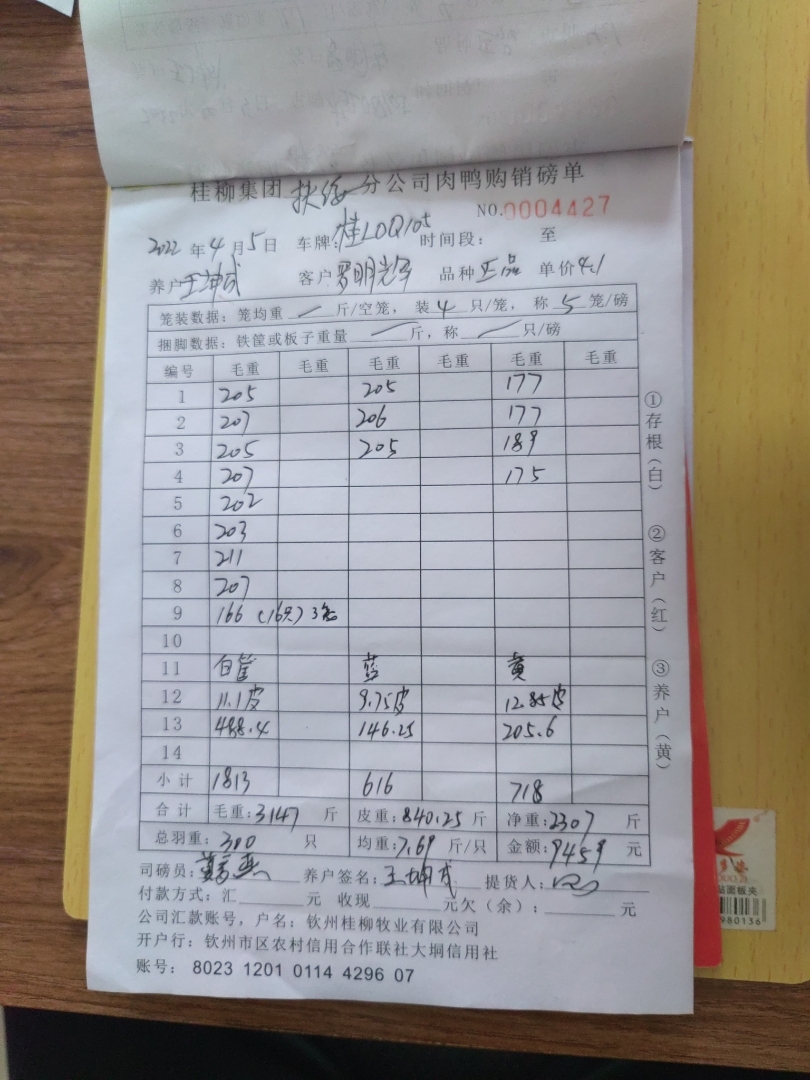 桂柳集团 扶绥 分公司肉鸭购销磅单
NO.0004427
2022 年 4 月 5 日 车牌: 桂L0Q105 时间段: 至
养户 王坤成 客户 罗明 品种 正品 单价 4.1
笼装数据: 笼均重 / 斤/空笼, 装 4 只/笼, 称 5 笼/磅
捆脚数据: 铁筐或板子重量 / 斤, 称 / 只/磅
编号 毛重 毛重 毛重 毛重 毛重 毛重
1 205 205 177
2 207 206 177
3 205 205 189
4 207 175
5 202
6 203
7 211
8 207
9 166 (16只) 3笼
10
11 白筐 蓝 黄
12 11.1皮 9.75皮 12.85皮
13 488.4 146.25 205.6
14
小计 1813 616 718
合计 毛重: 3147 斤 皮重: 840.25 斤 净重: 2307 斤
总羽重: 300 只 均重: 7.69 斤/只 金额: 9459 元
司磅员: 养户签名: 王坤成 提货人:
付款方式: 汇 元 收现 元欠(余): 元
公司汇款账号, 户名: 钦州桂柳牧业有限公司
开户行: 钦州市区农村信用合作联社大垌信用社
账号: 8023 1201 0114 4296 07
①存根(白) ②客户(红) ③养户(黄)
贴面板夹
980136